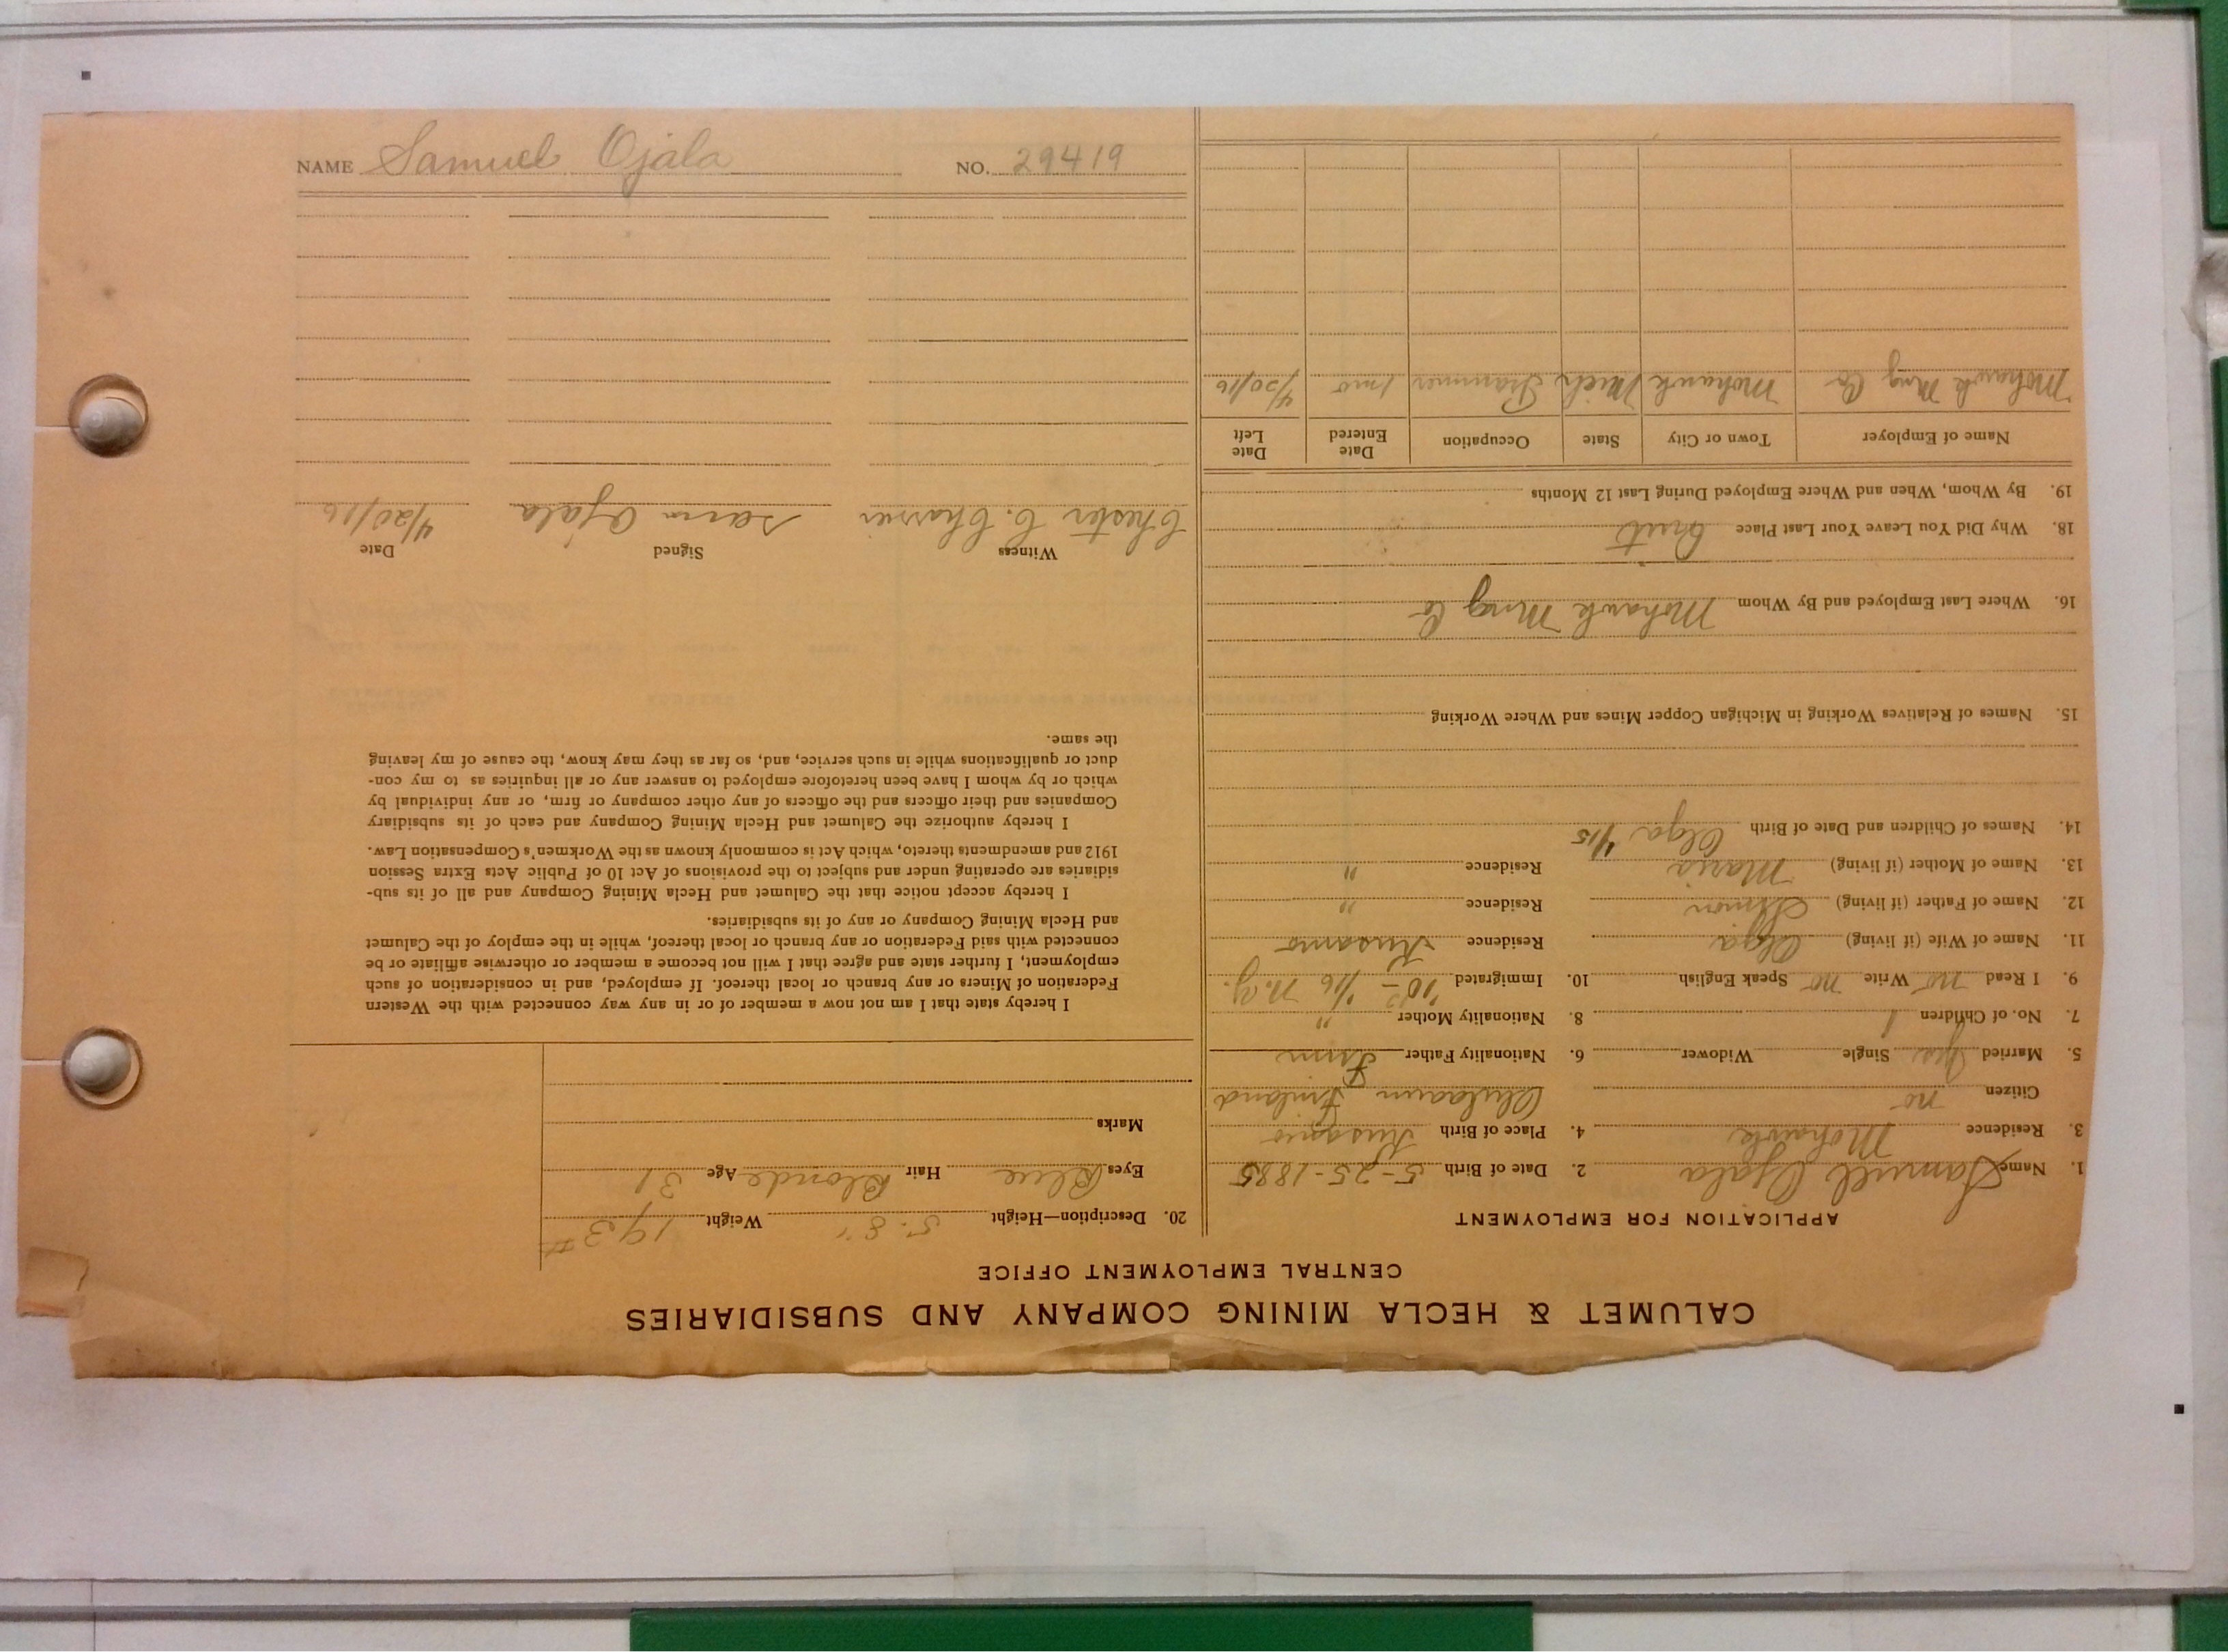 CALUMET & HECLA MINING COMPANY AND SUBSIDIARIES
CENTRAL EMPLOYMENT OFFICE
APPLICATION FOR EMPLOYMENT
1. Name Samuel Ojala 2. Date of Birth 5-25-1885
3. Residence Mohawk 4. Place of Birth Kusamo
Citizen no Finland
5. Married Yes Single Widower 6. Nationality Father Finn
7. No. of Children 1 8. Nationality Mother "
9. I Read no Write no Speak English 10. Immigrated '10 - 1/16 N.Y.
11. Name of Wife (if living) Olga Residence Kusamo
12. Name of Father (if living) Simon Residence "
13. Name of Mother (if living) Maria Residence "
14. Names of Children and Date of Birth Olga 1/15
15. Names of Relatives Working in Michigan Copper Mines and Where Working
16. Where Last Employed and By Whom Mohawk Mng Co
18. Why Did You Leave Your Last Place Quit
19. By Whom, When and Where Employed During Last 12 Months
Name of Employer Town or City State Occupation Date Entered Date Left
Mohawk Mng Co Mohawk Mich Trammer 1 mo 4/20/16
20. Description—Height 5-8" Weight 193#
Eyes Blue Hair Blonde Age 31
Marks
I hereby state that I am not now a member of or in any way connected with the Western
Federation of Miners or any branch or local thereof. If employed, and in consideration of such
employment, I further state and agree that I will not become a member or otherwise affiliate or be
connected with said Federation or any branch or local thereof, while in the employ of the Calumet
and Hecla Mining Company or any of its subsidiaries.
I hereby accept notice that the Calumet and Hecla Mining Company and all of its sub-
sidiaries are operating under and subject to the provisions of Act 10 of Public Acts Extra Session
1912 and amendments thereto, which Act is commonly known as the Workmen's Compensation Law.
I hereby authorize the Calumet and Hecla Mining Company and each of its subsidiary
Companies and their officers and the officers of any other company or firm, or any individual by
which or by whom I have been heretofore employed to answer any or all inquiries as to my con-
duct or qualifications while in such service, and, so far as they may know, the cause of my leaving
the same.
Witness Signed Date
Chester C. Charrier Sam Ojala 4/20/16
NAME Samuel Ojala NO. 29419